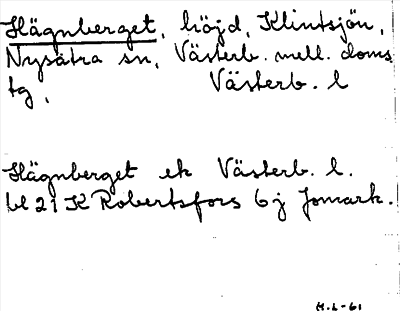 Hägnberget, höjd, Klintsjön,
Nysätra sn, Västerb. mell. doms
tg, Västerb. l
Hägnberget ek Västerb. l.
bl 21 K Robertsfors 6j Jomark.
H.L-61